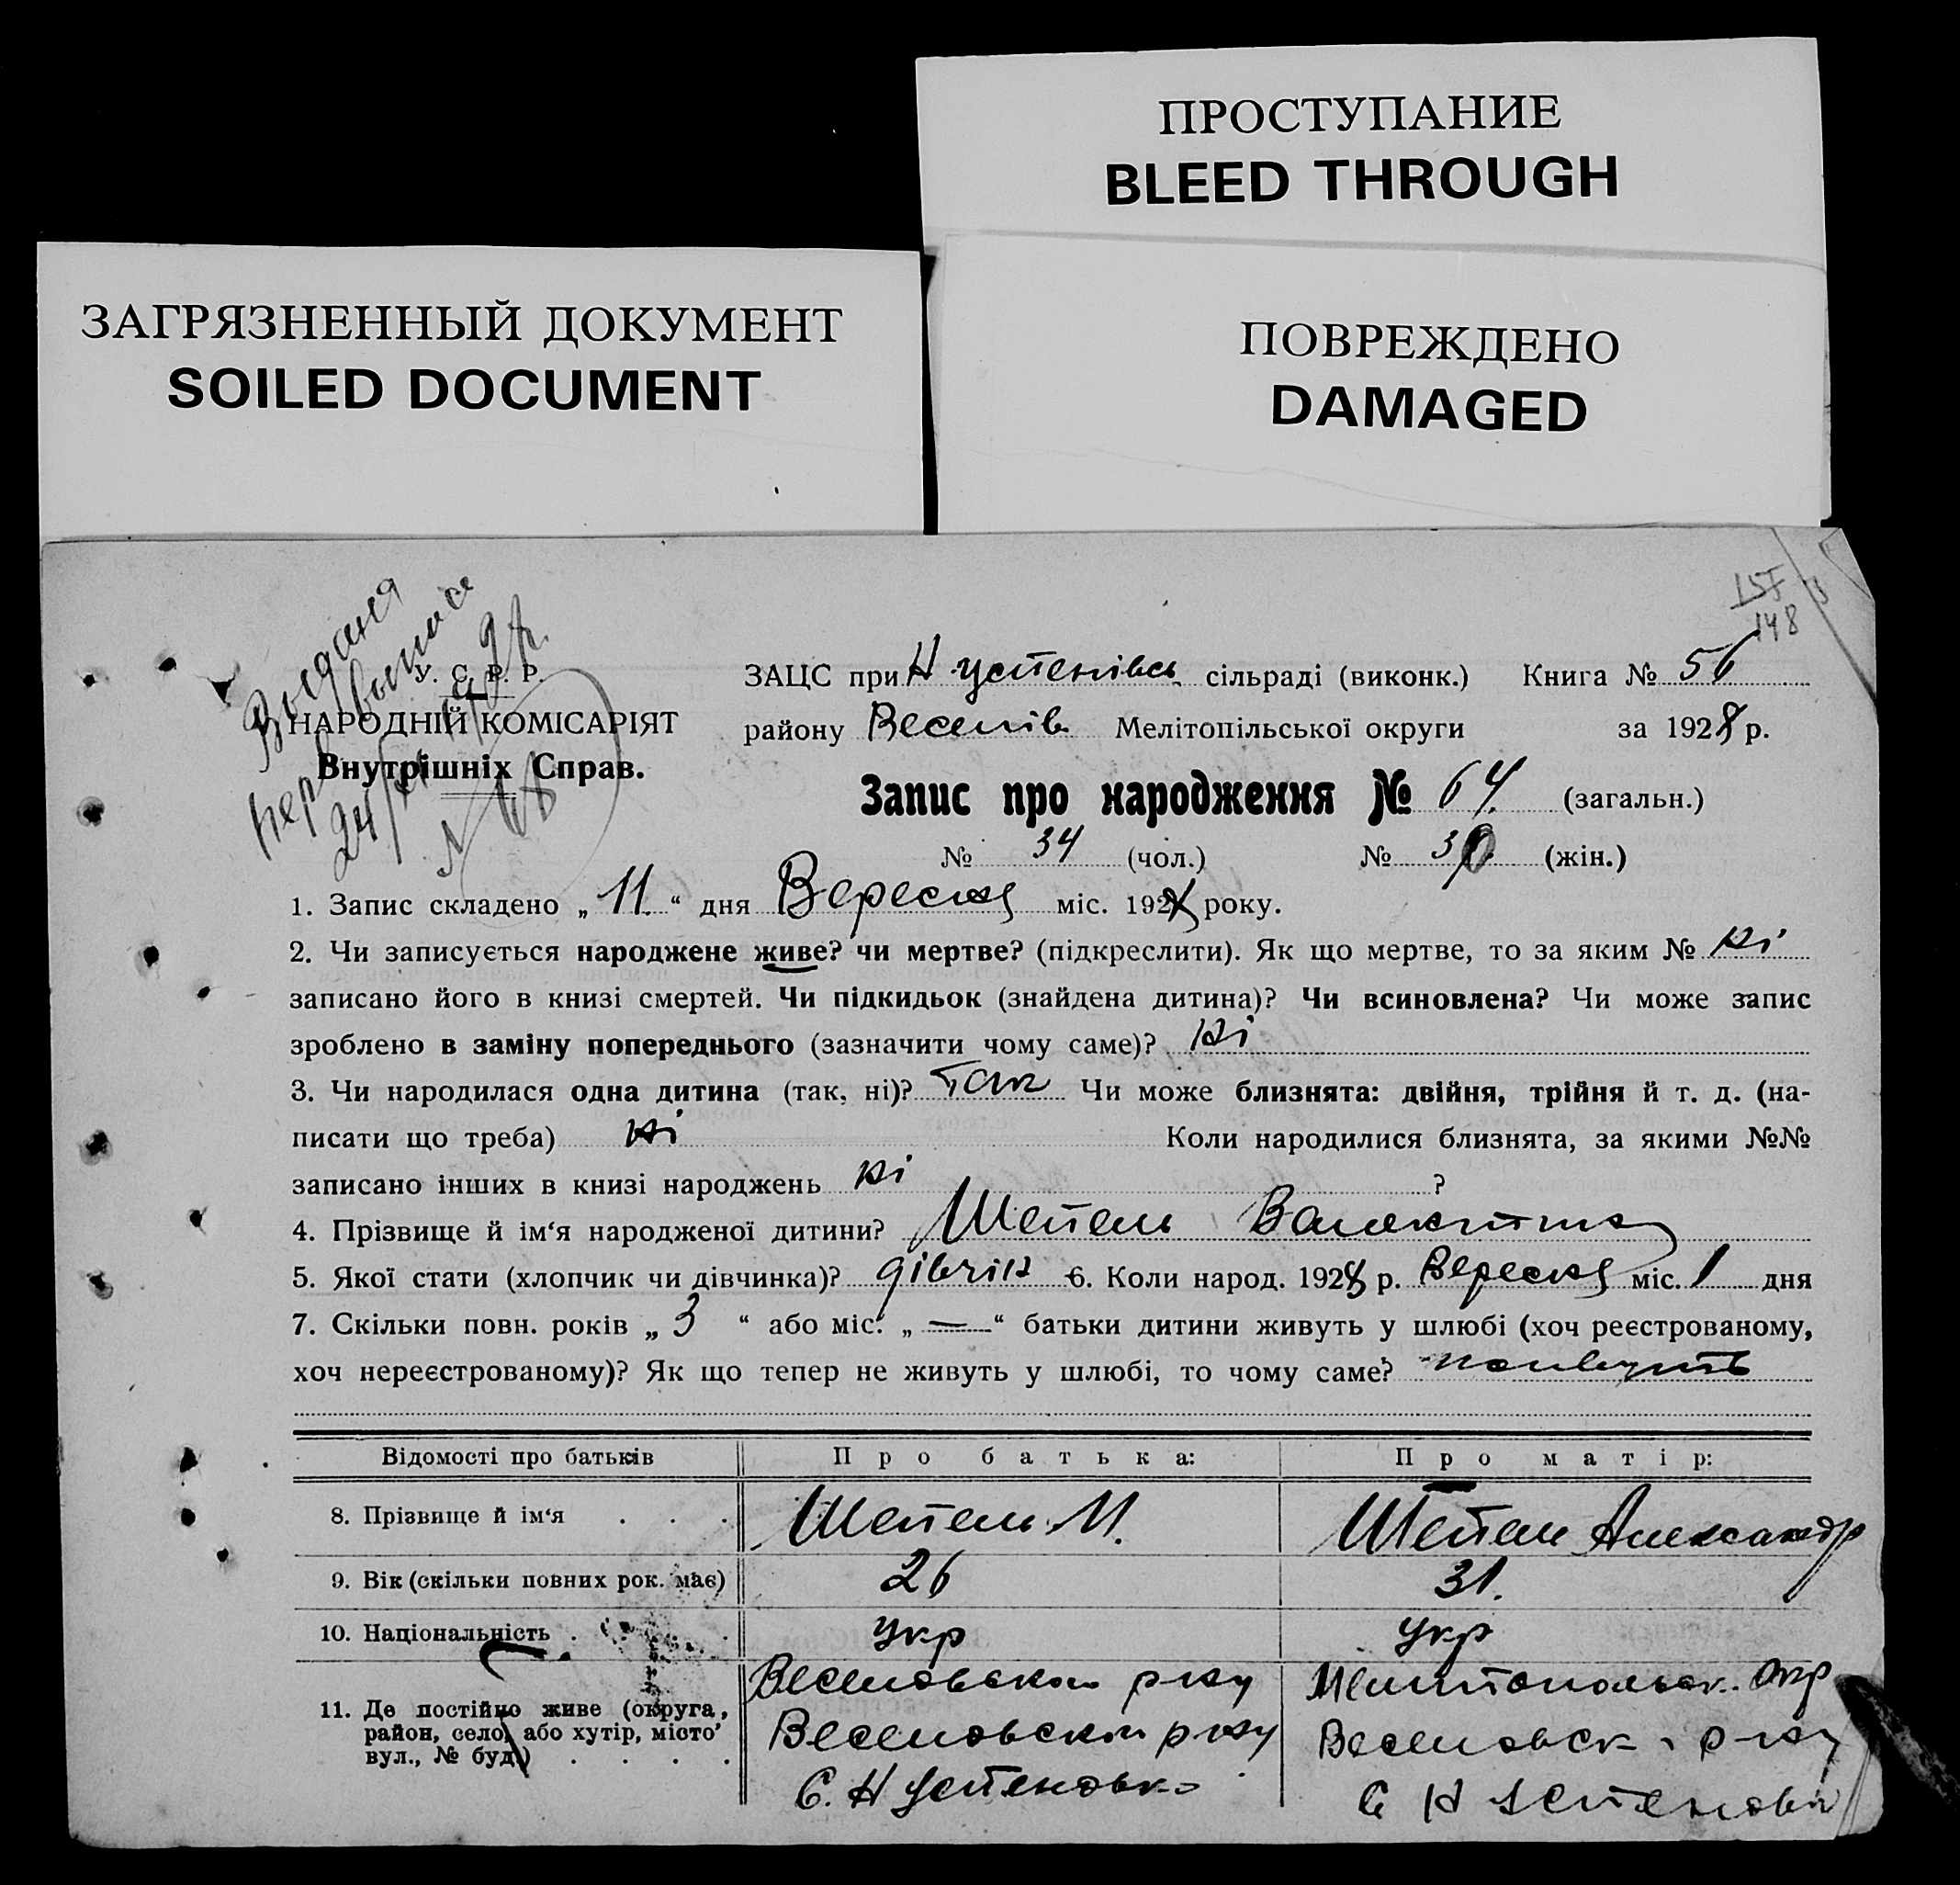 ПРОСТУПАНИЕ
BLEED THROUGH
ЗАГРЯЗНЕННЫЙ ДОКУМЕНТ
SOILED DOCUMENT
ПОВРЕЖДЕНО
DAMAGED
148
У. С. Р. Р.
НАРОДНІЙ КОМІСАРІЯТ
Внутрішніх Справ.
ЗАЦС при Н Успенівсь сільраді (виконк.) Книга № 56
району Веселів Мелітопільської округи за 1928 р.
Запис про народження № 64. (загальн.)
№ 34 (чол.) № 30 (жін.)
1. Запис складено „ 11 “ дня Вересня міс. 1928 року.
2. Чи записується народжене живе? чи мертве? (підкреслити). Як що мертве, то за яким № ні
записано його в книзі смертей. Чи підкидьок (знайдена дитина)? Чи всиновлена? Чи може запис
зроблено в заміну попереднього (зазначити чому саме)? ні
3. Чи народилася одна дитина (так, ні)? так Чи може близнята: двійня, трійня й т. д. (на-
писати що треба) ні Коли народилися близнята, за якими №№
записано інших в книзі народжень ні ?
4. Прізвище й ім‘я народженої дитини? Шепель Валентина
5. Якої стати (хлопчик чи дівчинка)? дівчін 6. Коли народ. 1928 р. Вересня міс. 1 дня
7. Скільки повн. років „ 3 “ або міс. „ — “ батьки дитини живуть у шлюбі (хоч реєстрованому,
хоч нереєстрованому)? Як що тепер не живуть у шлюбі, то чому саме?
Відомості про батьків Про батька: Про матір:
8. Прізвище й ім‘я . . . Шепель М. Шепель Александр
9. Вік (скільки повних рок. має) 26 31.
10. Національність . . . . Укр Укр
11. Де постійно живе (округа,
район, село, або хутір, місто
вул., № буд.) . . . .
Веселовском р-ну Мелитопольск. окр
Веселовском р-ну Веселовск р-ну
С. Н Успеновка С Н Успеновк